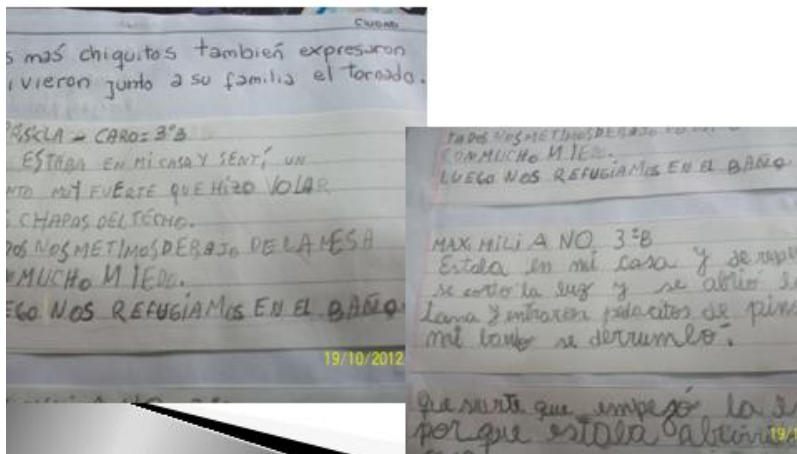 CIUDAD
s más chiquitos también expresaron
ivieron junto a su familia el tornado.
CARO= 3°B
ESTABA EN MI CASA Y SENTÍ UN
NTO MUY FUERTE QUE HIZO VOLAR
CHAPAS DEL TECHO.
DOS NOS METIMOS DEBAJO DE LA MESA
MUCHO MIEDO.
EGO NOS REFUGIAMOS EN EL BAÑO
19/10/2012
TODOS NOS METIMOS DEBAJO
CON MUCHO MIEDO.
LUEGO NOS REFUGIAMOS EN EL BAÑO
MAXIMILIANO 3°B
Estaba en mi casa y de repe
se corto la luz y se abrió
tana y entraron pedacitos de
mi se derrumbó.
que suerte que empezó la
por que estaba aburri
19/1